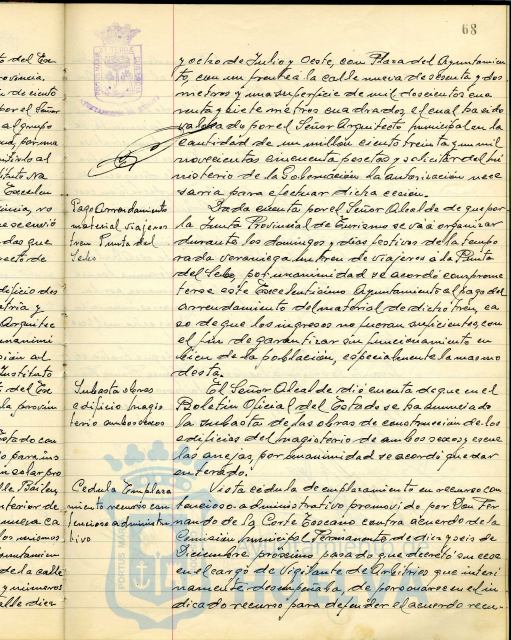 68
y ocho de Julio y Oeste, con Plaza del Ayuntamien
to, con un frente á la calle nueva de sesenta y dos
metros y una superficie de mil doscientos cua
renta y siete metros cuadrados, el cual ha sido
valorado por el Señor Arquitecto municipal en la
cantidad de un millón ciento treinta y un mil
novecientas cincuenta pesetas y solicitar del Mi
nisterio de la Gobernación la autorización nece
saria para efectuar dicha cesión.
Pago Arrendamiento
material viajeros
tren Punta del
Sebo
Dada cuenta por el Señor Alcalde de que por
la Junta Provincial de Turismo se va á organizar
durante los domingos y dias festivos de la tempo
rada veraniega un tren de viajeros á la Punta
del Sebo, por unanimidad se acordó comprome
terse este Excelentísimo Ayuntamiento al pago del
arrendamiento del material de dicho tren, ca
so de que los ingresos no fueran suficientes, con
el fin de garantizar su funcionamiento en
bien de la población, especialmente la mas mo
desta.
Subasta obras
edificio magis
terio ambos sexos
El Señor Alcalde dió cuenta de que en el
Boletín Oficial del Estado se ha anunciado
la subasta de las obras de construcción de los
edificios del magisterio de ambos sexos y escue
las anejas, por unanimidad se acordó quedar
enterado.
Cedula Emplaza
miento recurso con
tencioso administra
tivo
Vista cédula de emplazamiento en recurso con
tencioso-administrativo, promovido por Don Fer
nando de la Corte Toscano contra acuerdo de la
Comisión Municipal Permanente de diez y seis de
Diciembre próximo pasado que decretó su cese
en el cargo de Vigilante de Arbitrios que interi
namente desempeñaba, de personarse en el in
dicado recurso para defender el acuerdo recu-